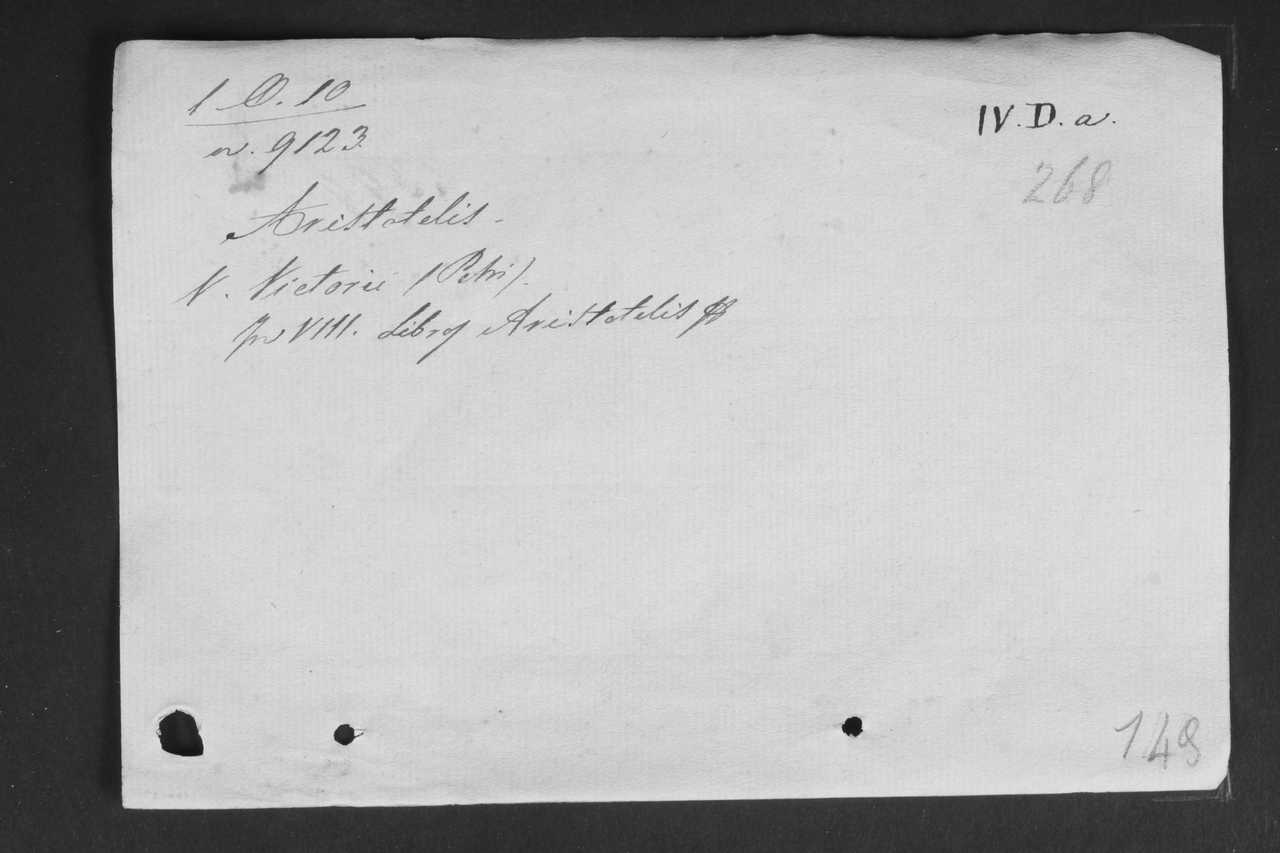 1 O. 10
IV. D. a.
n. 9123
268
Aristotelis.
V. Victorii (Petri).
In VIII. Libros Aristotelis
149